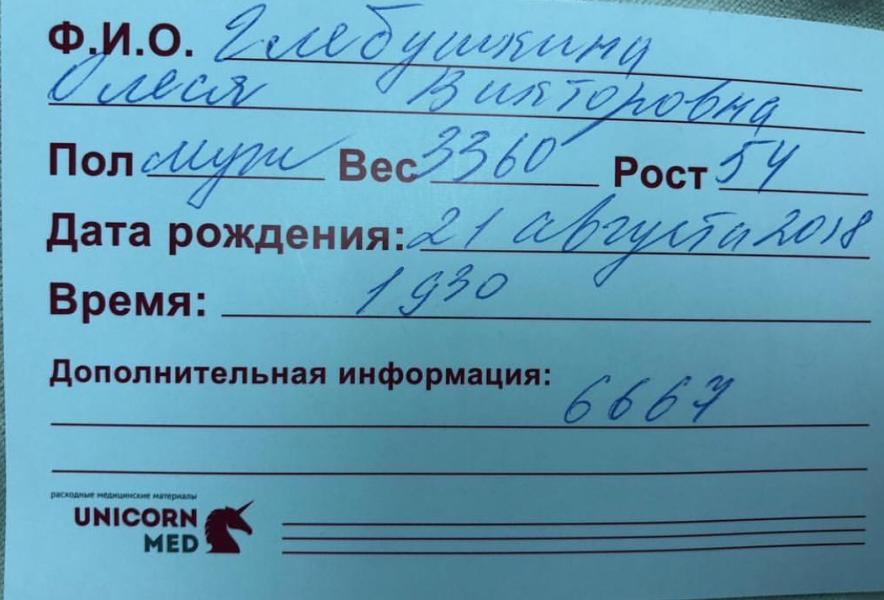 Ф.И.О. Глебушкина
Олеся Викторовна
Пол муж Вес 3360 Рост 54
Дата рождения: 21 августа 2018
Время: 1930
Дополнительная информация:
6667
расходные медицинские материалы
UNICORN
MED